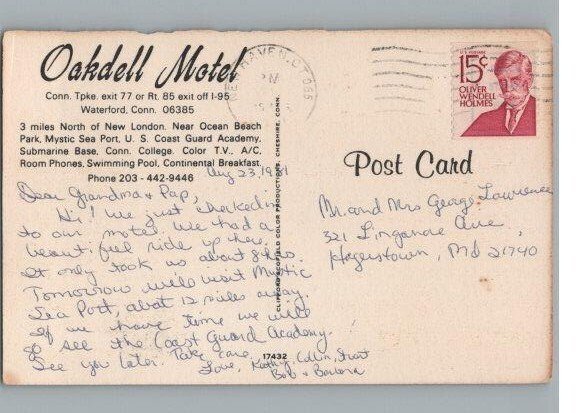 Oakdell Motel
Conn. Tpke. exit 77 or Rt. 85 exit off I-95
Waterford, Conn. 06385
3 miles North of New London. Near Ocean Beach
Park, Mystic Sea Port, U. S. Coast Guard Academy,
Submarine Base, Conn. College. Color T.V., A/C,
Room Phones, Swimming Pool, Continental Breakfast.
Phone 203 - 442-9446
Aug 23, 1981
Dear Grandma & Pap,
Hi! We just checked in
to our motel. We had a
beautiful ride up here.
It only took us about 8 hrs.
Tomorrow will visit Mystic
Sea Port, about 12 miles away.
If we have time we will
go see the Coast Guard Academy.
See you later. Take care,
Love, Kathy, Collin, Stuart
Bob & Barbara
17432
CLIFFORD SCOFIELD COLOR PRODUCTIONS, CHESHIRE, CONN.
HAVEN, CT 065
PM
U.S. POSTAGE
15¢
OLIVER
WENDELL
HOLMES
Post Card
Mr. and Mrs George Lawrence
321 Linganore Ave,
Hagerstown, Md 21740